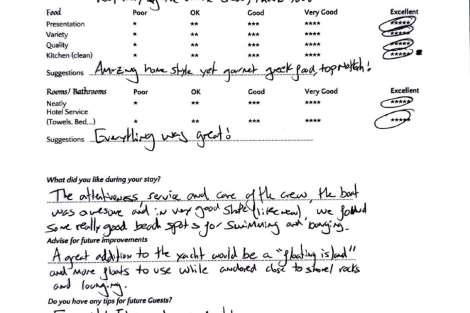 Food Poor OK Good Very Good Excellent
Presentation * ** *** **** *****
Variety * ** *** **** *****
Quality * ** *** **** *****
Kitchen (clean) * ** *** **** *****
Suggestions Amazing home style yet gourmet greek food, top notch!
Rooms/ Bathrooms Poor OK Good Very Good Excellent
Neatly * ** *** **** *****
Hotel Service
(Towels, Bed...) * ** *** **** *****
Suggestions Everything was great!
What did you like during your stay?
The attentiveness, service and care of the crew, the boat
was awesome and in very good shape (like new), we found
some really good beach spots for swimming and lounging.
Advise for future improvements
A great addition to the yacht would be a "floating island"
and more floats to use while anchored close to shore/ rocks
and lounging.
Do you have any tips for future Guests?